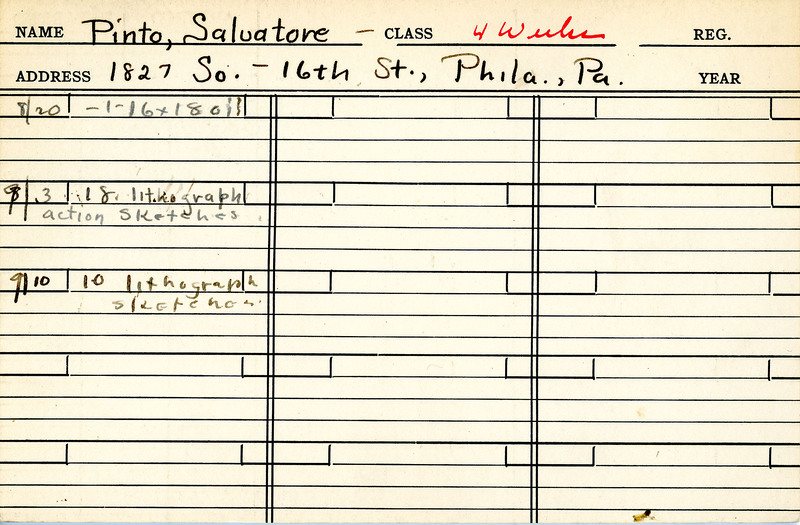 NAME Pinto, Salvatore - CLASS 4 Weeks REG.
ADDRESS 1827 So. - 16th St., Phila., Pa. YEAR
8/20 -1-16x18 oil
9/3 18 lithograph
action sketches.
9/10 10 lithograph
sketches.